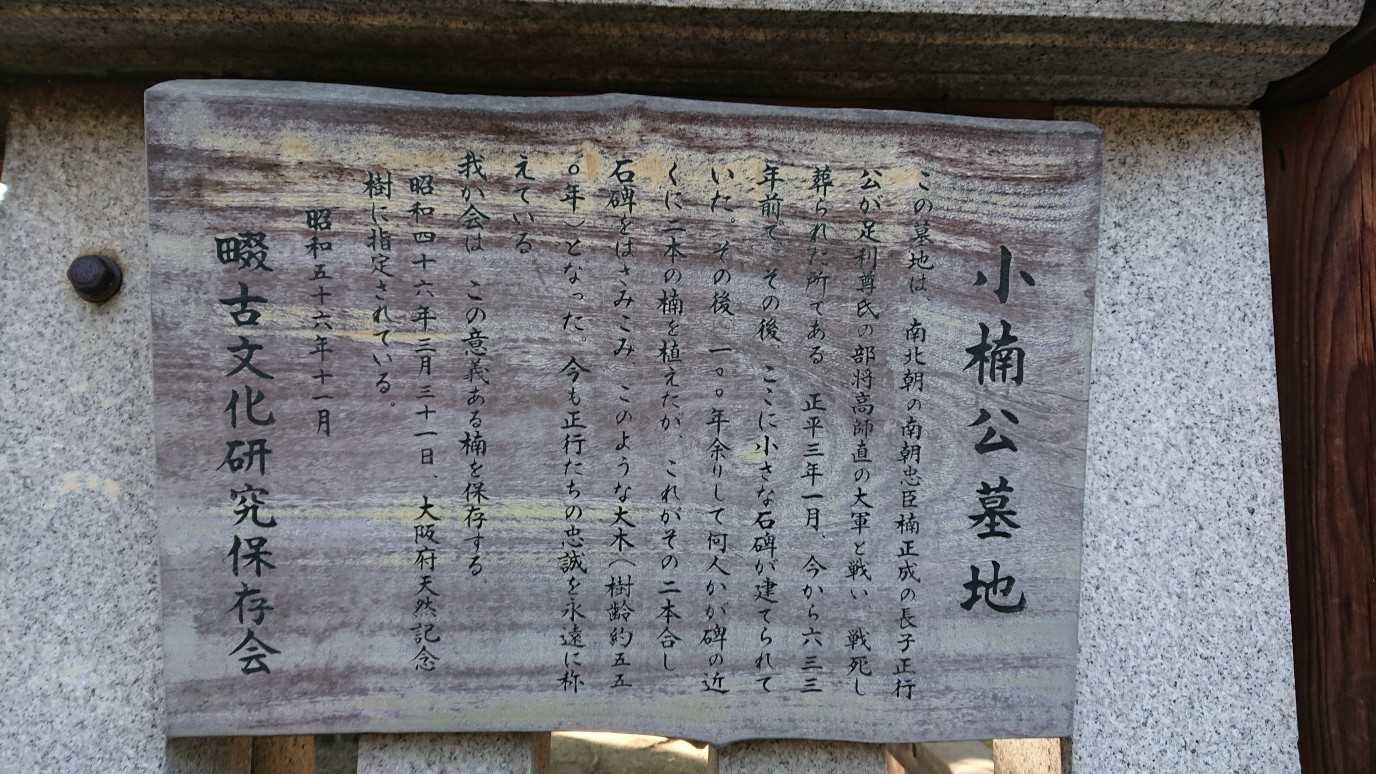 小楠公墓地
この墓地は、南北朝の南朝忠臣楠正成の長子正行
公が足利尊氏の部将高師直の大軍と戦い 戦死し
葬られた所である 正平三年一月、今から六三三
年前で その後 ここに小さな石碑が建てられて
いた。その後、一〇〇年余りして何人かが碑の近
くに二本の楠を植えたが、これがその二本合し
石碑をはさみこみ このような大木(樹齢約五五
〇年)となった。今も正行たちの忠誠を永遠に称
えている
我が会は この意義ある楠を保存する
昭和四十六年三月三十一日、大阪府天然記念
樹に指定されている。
昭和五十六年十一月
畷古文化研究保存会